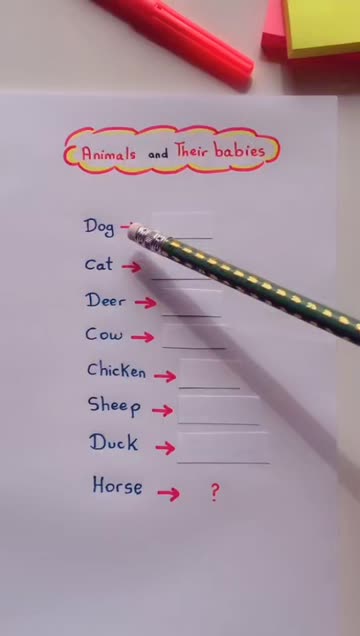 Animals and Their babies
Dog →
Cat →
Deer →
Cow →
Chicken →
Sheep →
Duck →
Horse → ?